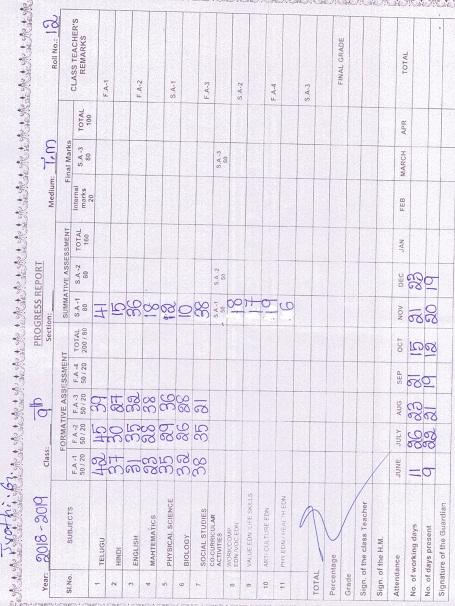 PROGRESS REPORT
Year: 2018-2019 Class: 9th Section: Medium: T/m Roll No.: 12
Sl.No. SUBJECTS FORMATIVE ASSESSMENT SUMMATIVE ASSESSMENT Final Marks CLASS TEACHER'S REMARKS
F.A -1 50 / 20 F.A -2 50 / 20 F.A -3 50 / 20 F.A -4 50 / 20 TOTAL 200 / 80 S.A -1 80 S.A -2 80 TOTAL 160 Internal marks 20 S.A -3 80 TOTAL 100
1 TELUGU 42 45 39 41 F.A-1
2 HINDI 37 30 27 15
3 ENGLISH 31 35 32 36 F.A-2
4 MAHTEMATICS 23 28 38 18
5 PHYSICAL SCIENCE 35 29 36 12 S.A-1
6 BIOLOGY 32 26 28 10
7 SOCIAL STUDIES 38 35 21 38 F.A-3
CO-CURRICULAR ACTIVITIES S.A -1 50 S.A -2 50 S.A -3 50
8 WORK/COMP. EDN/VOC.EDN 18 S.A-2
9 VALUE EDN LIFE SKILLS 17
10 ART-CULTURE EDN 19 F.A-4
11 PHY.EDN / HEALTH EDN 16
TOTAL S.A-3
Percentage
Grade FINAL GRADE
Sign. of the class Teacher
Sign. of the H.M.
Attendance JUNE JULY AUG SEP OCT NOV DEC JAN FEB MARCH APR TOTAL
No. of working days 11 26 23 21 15 21 23
No. of days present 9 22 21 19 12 20 19
Signature of the Guardian